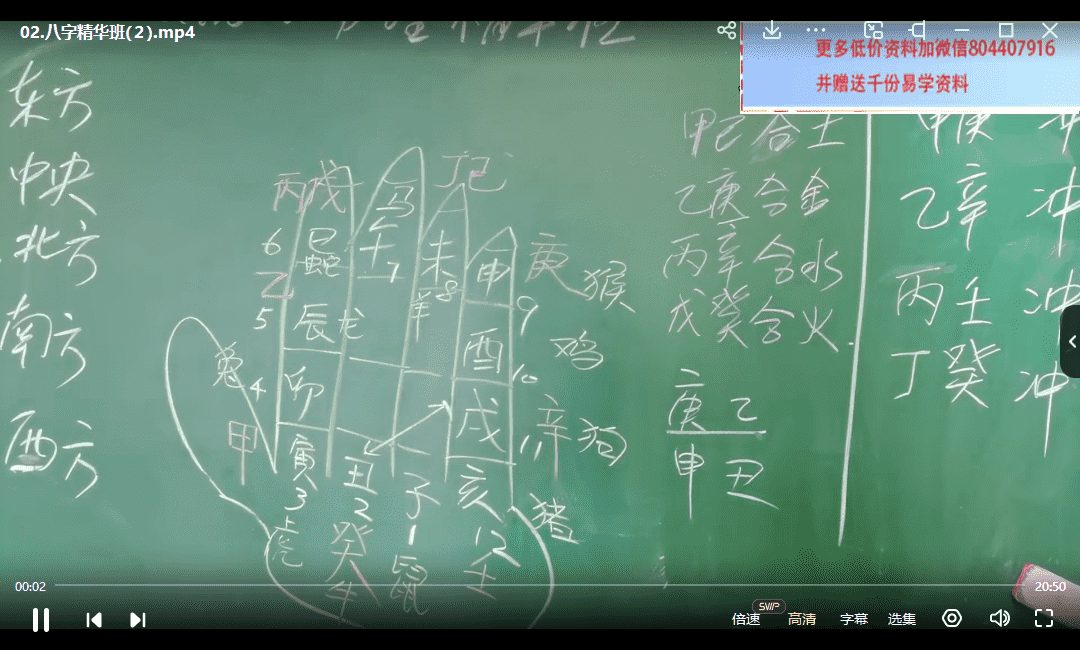 02.八字精华班(2).mp4
更多低价资料加微信804407916
并赠送千份易学资料
东方
中央
北方
南方
西方
丙戊
马
丁己
6
巳
蛇
午
7
未
8
羊
申
庚
猴
乙
5
辰龙
9
酉
鸡
兔
4
卯
10
戌
辛
狗
甲
寅
3
虎
丑
2
癸
牛
子
1
鼠
亥
12
壬
猪
11
甲己合土
乙庚合金
丙辛合水
戊癸合火
庚乙
申丑
甲庚冲
乙辛冲
丙壬冲
丁癸冲
00:02
20:50
倍速
SVIP
高清
字幕
选集